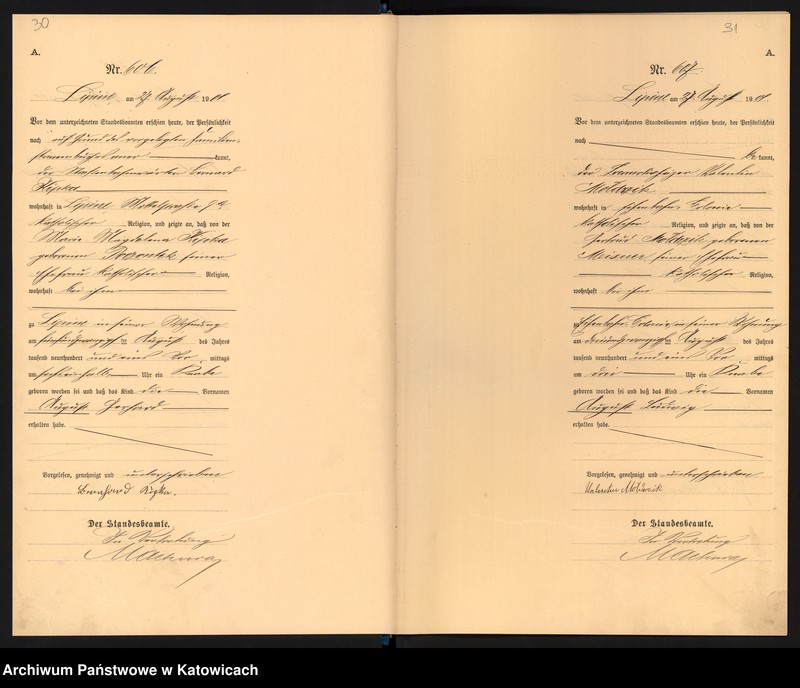 30
A.
Nr. 606.
Lipine am 27. August 1901.
Vor dem unterzeichneten Standesbeamten erschien heute, der Persönlichkeit
nach auf Grund des vorgelegten Familien-
stammbuches aner kannt,
der
wohnhaft in Lipine,
katholischer Religion, und zeigte an, daß von der
Maria Magdalena
geborenen seiner
Ehefrau katholischer Religion,
wohnhaft bei ihm
zu Lipine in seiner Wohnung
am fünfundzwanzigsten August des Jahres
tausend neunhundert und eins Vor mittags
um Uhr ein Knabe
geboren worden sei und daß das Kind die Vornamen
August Gerhard
erhalten habe.
Vorgelesen, genehmigt und unterschrieben
Bernhard
Der Standesbeamte.
In Vertretung
31
A.
Nr. 607.
Lipine am 27. August 1901.
Vor dem unterzeichneten Standesbeamten erschien heute, der Persönlichkeit
nach be kannt,
der Valentin
Moldrzik
wohnhaft in Colonie
katholischer Religion, und zeigte an, daß von der
Gertrud Moldrzik geborenen
Meisner seiner Ehefrau
katholischer Religion,
wohnhaft bei ihm
zu Colonie in seiner Wohnung
am dreiundzwanzigsten August des Jahres
tausend neunhundert und eins Vor mittags
um drei Uhr ein Knabe
geboren worden sei und daß das Kind die Vornamen
August Ludwig
erhalten habe.
Vorgelesen, genehmigt und unterschrieben
Valentin Moldrzik
Der Standesbeamte.
In Vertretung
Archiwum Państwowe w Katowicach